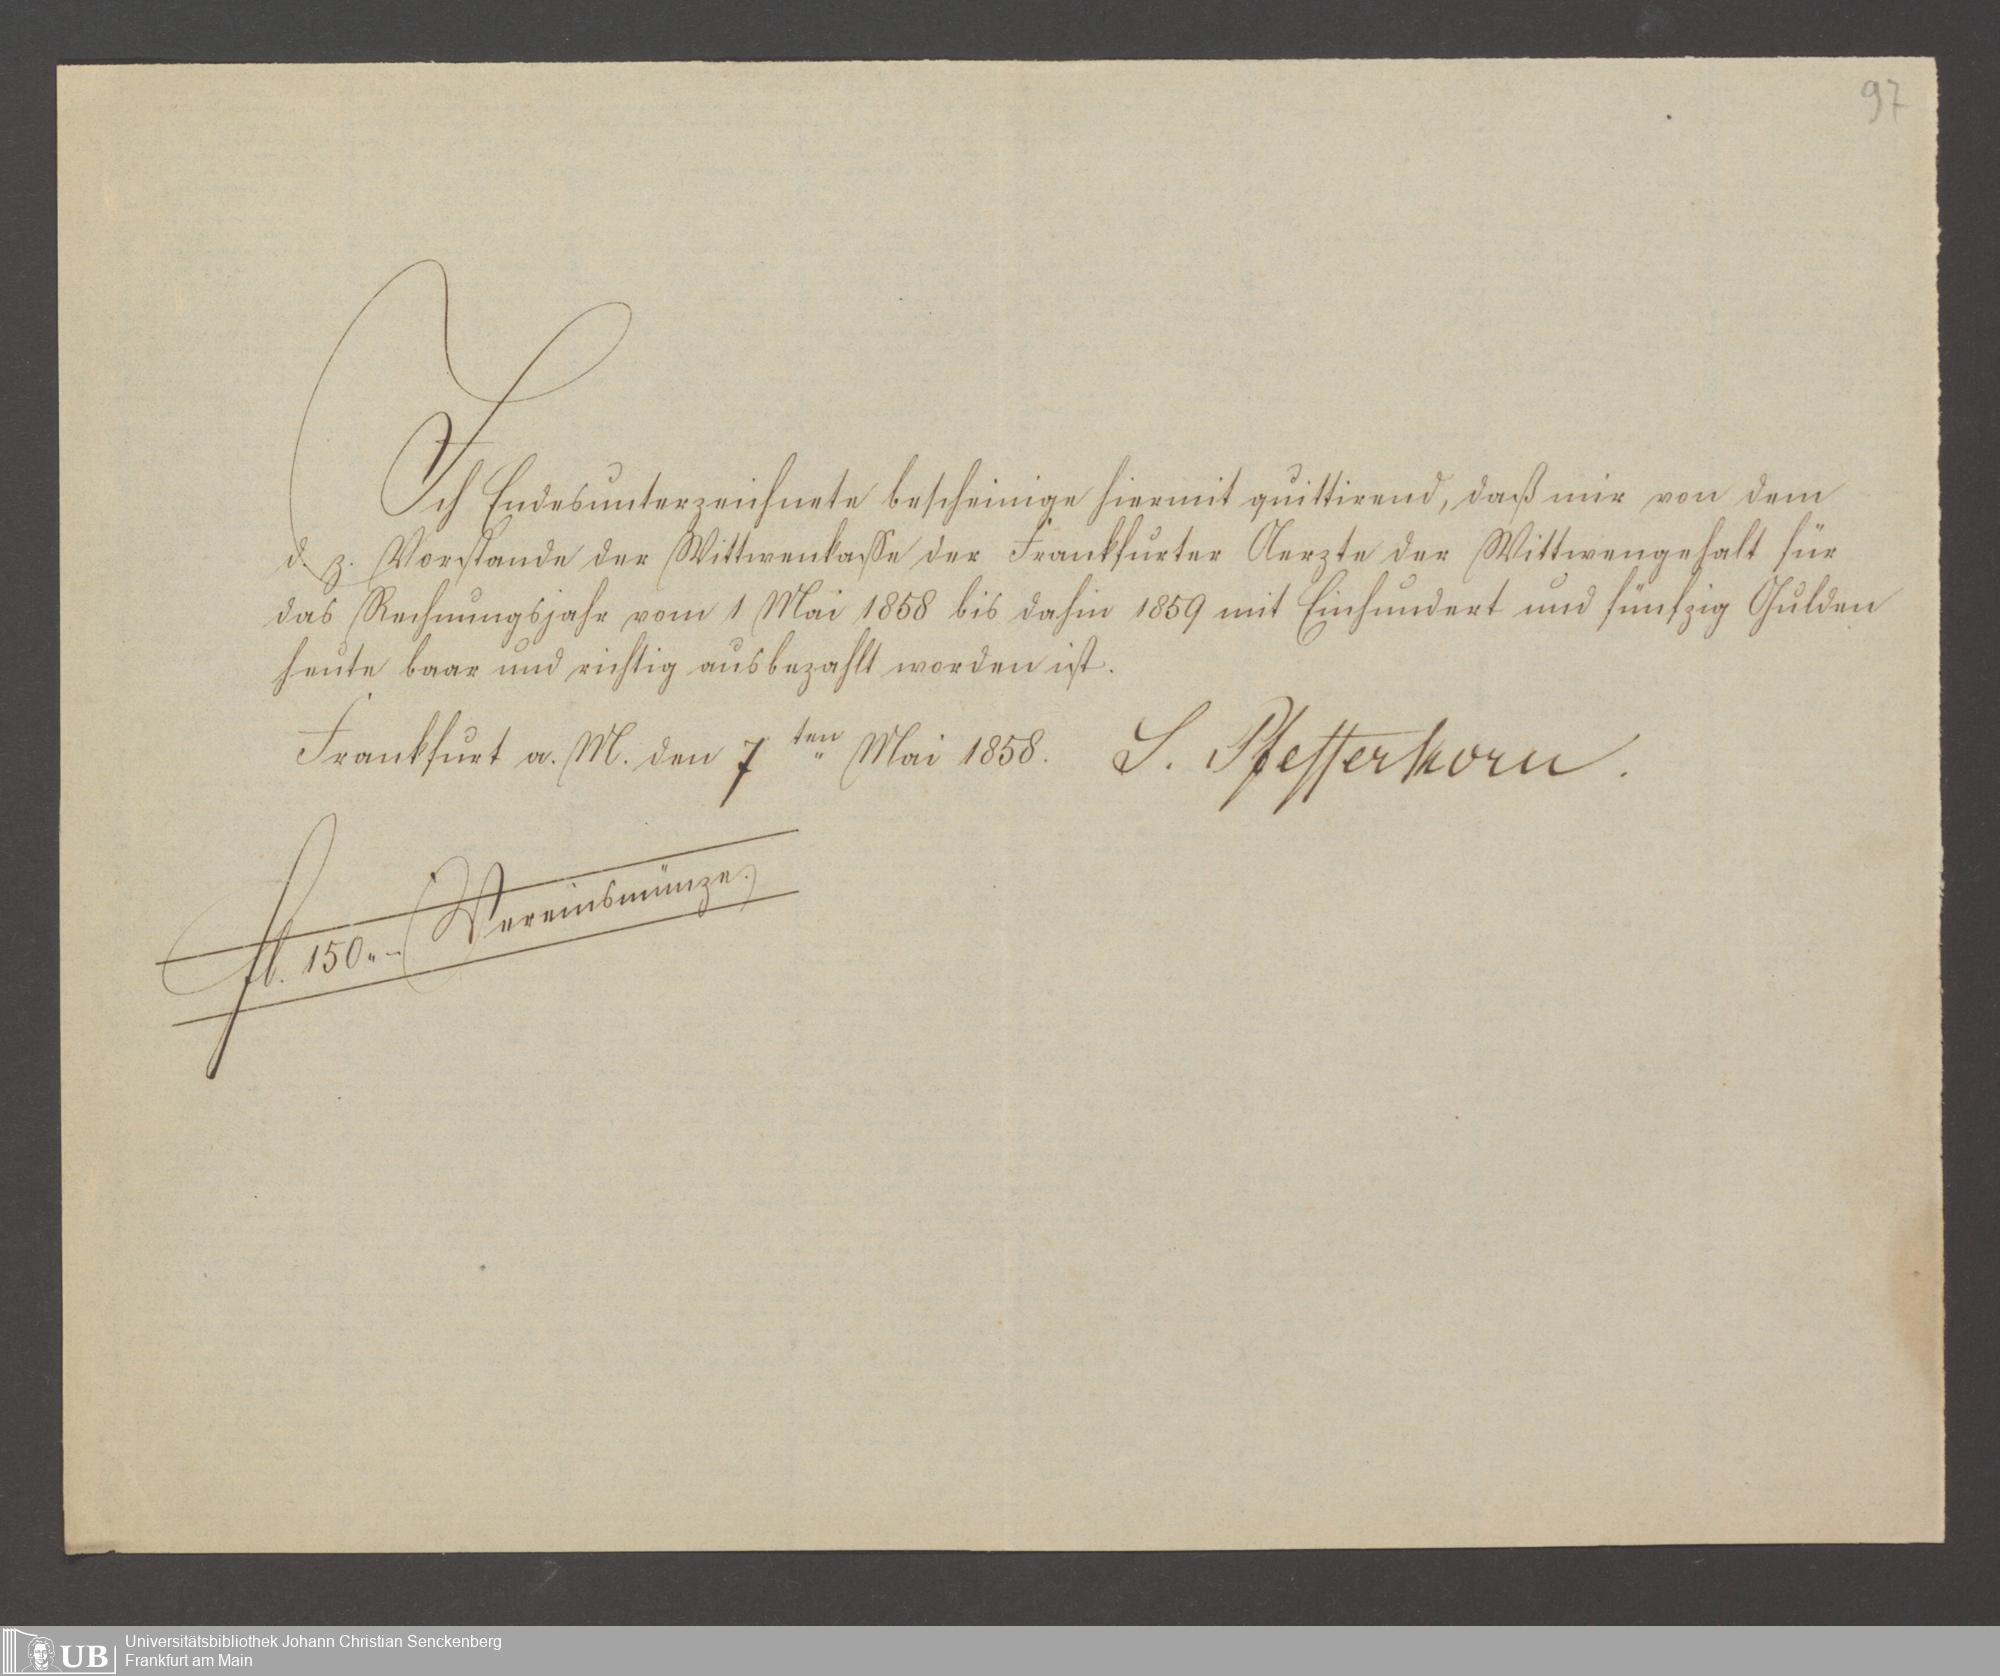 97
Ich Endesunterzeichnete bescheinige hiermit quittirend, daß mir von dem
d. z. Vorstande der Wittwenkasse der Frankfurter Aerzte der Wittwengehalt für
das Rechnungsjahr vom 1 Mai 1858 bis dahin 1859 mit Einhundert und fünfzig Gulden
heute baar und richtig ausbezahlt worden ist.
Frankfurt a. M. den 7ten Mai 1858. S. Pfefferkorn.
fl. 150.,- (Vereinsmünze.)
UB
Universitätsbibliothek Johann Christian Senckenberg
Frankfurt am Main